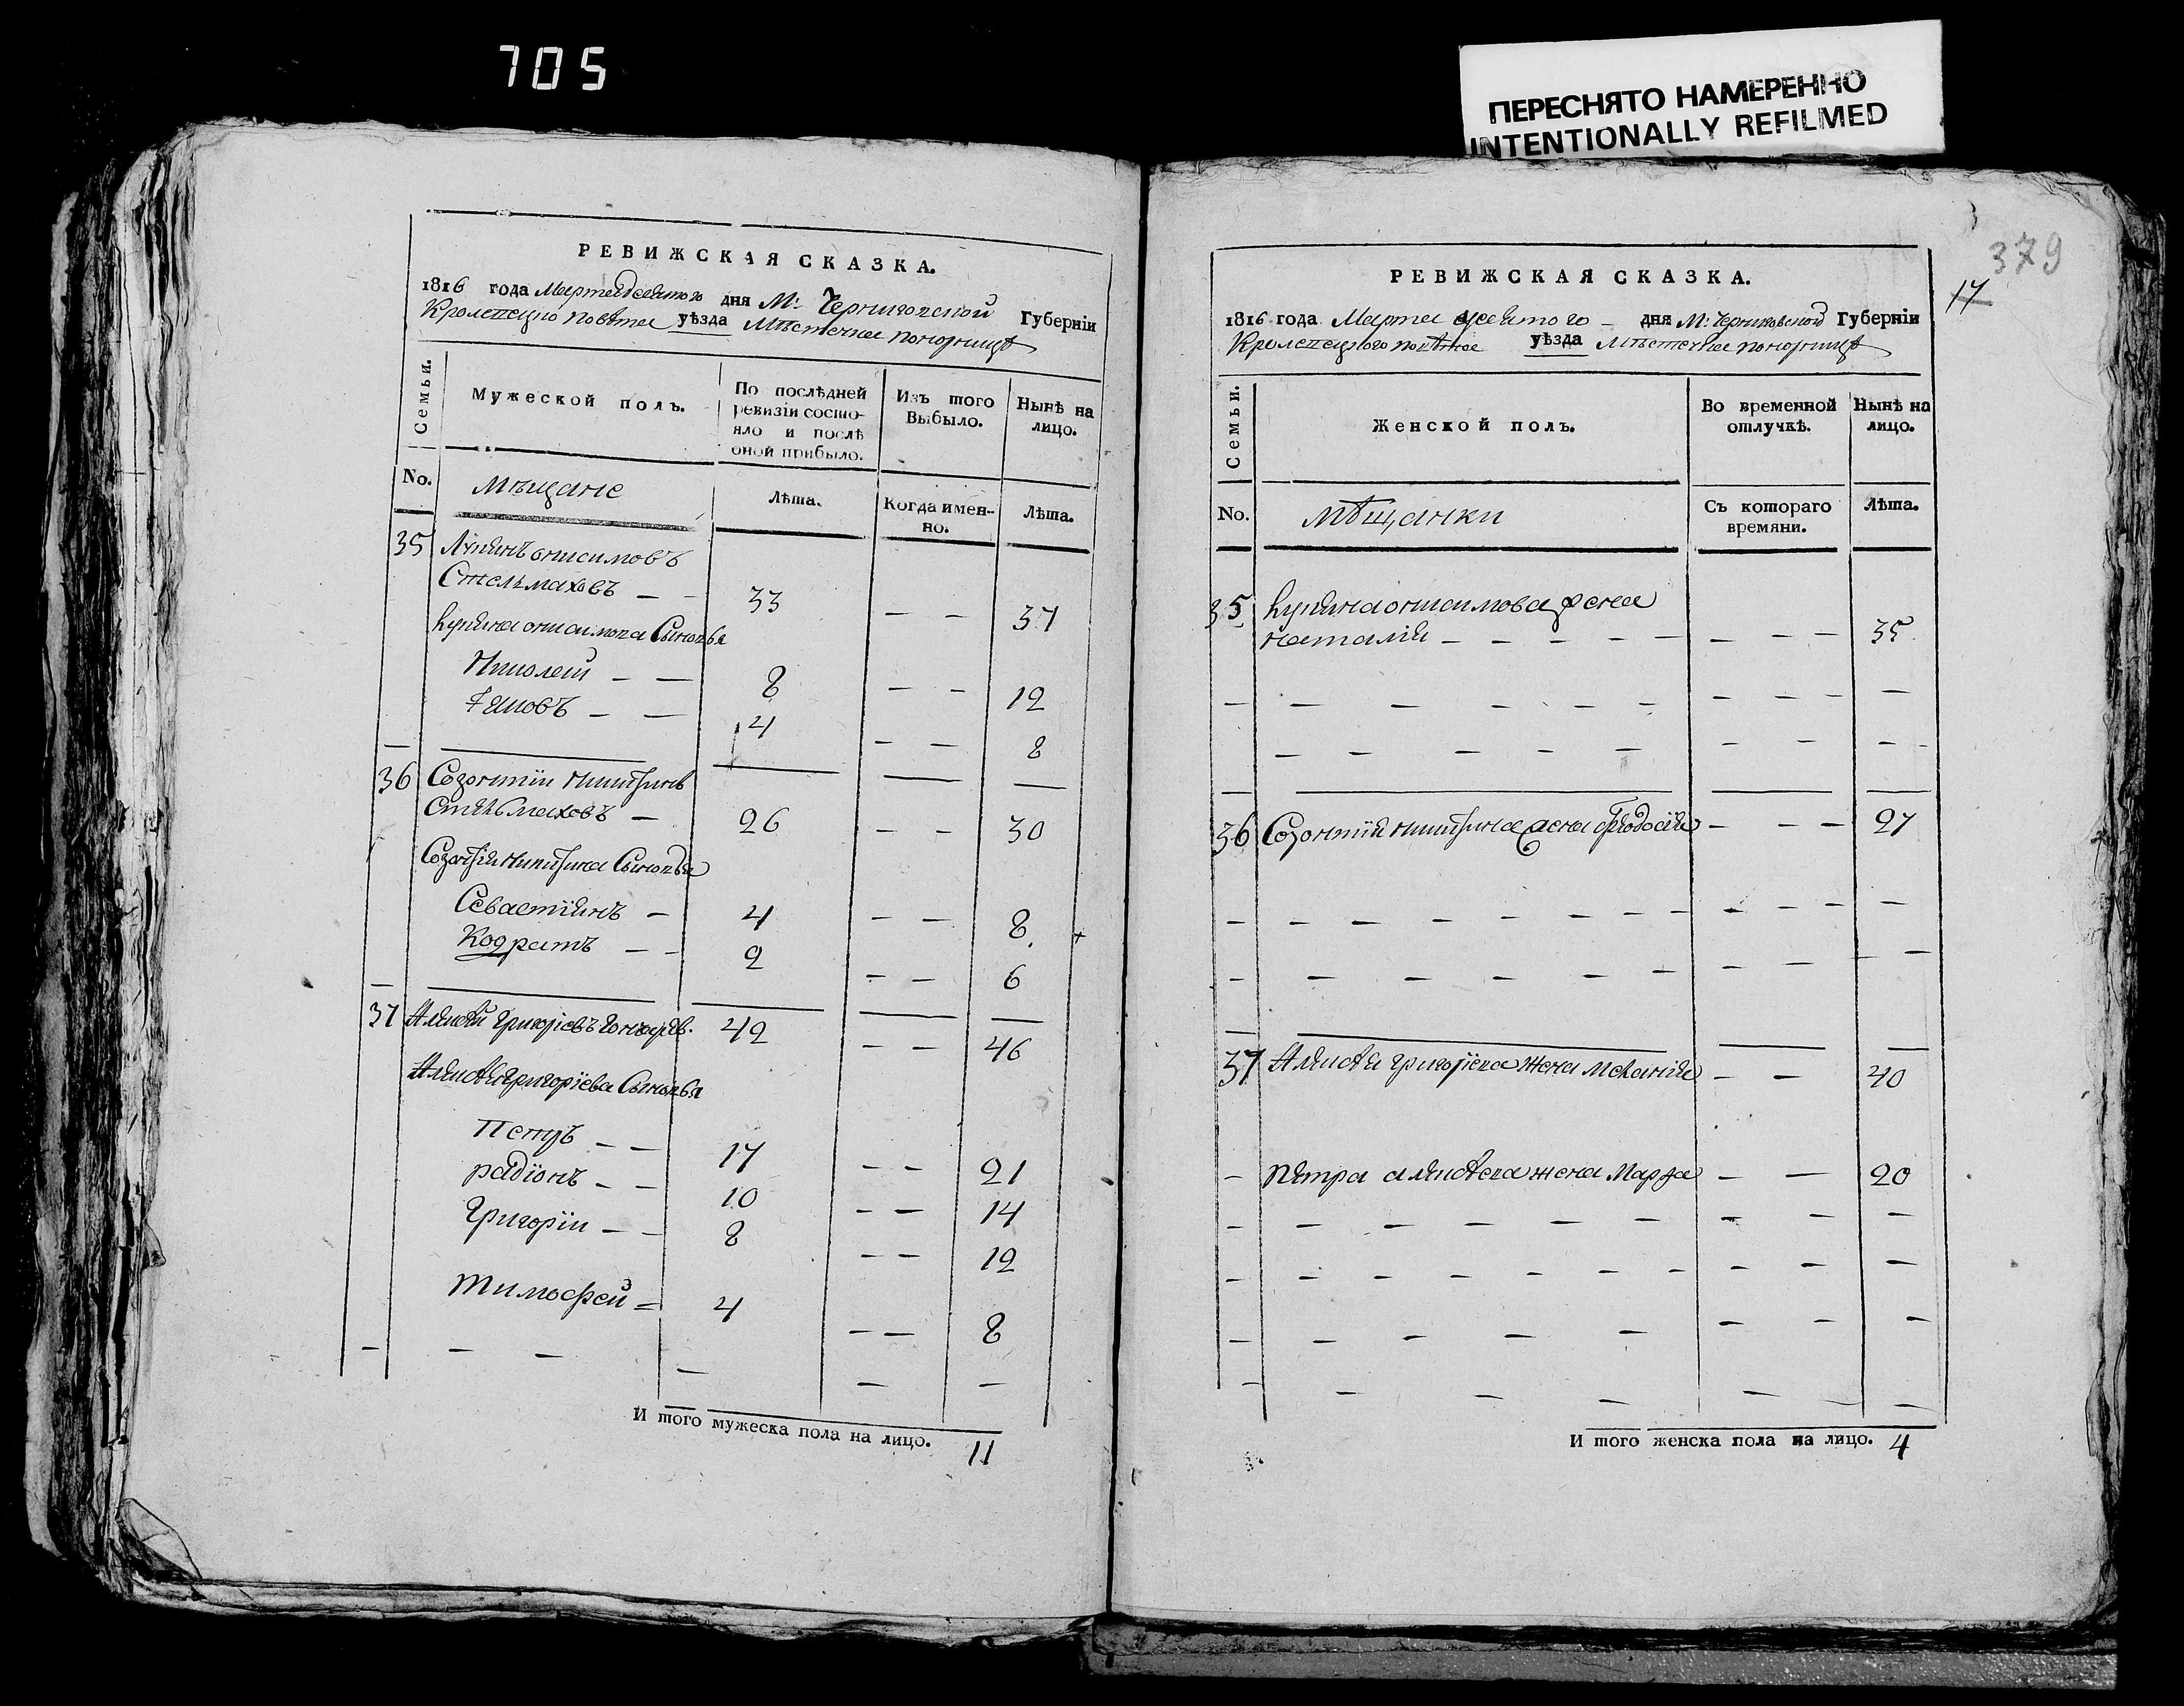 705
ПЕРЕСНЯТО НАМЕРЕННО
INTENTIONALLY REFILMED
РЕВИЖСКАЯ СКАЗКА.
1816 года Марта десятого дня М: Черниговской Губерніи
Кролевецко повѣта уѣзда Мѣстечка Понорницѣ
Семьи.
Мужеской полъ.
По послѣдней
ревизіи состо-
яло и послѣ
оной прибыло.
Изъ того
Выбыло.
Нынѣ на
лицо.
No.
Мѣщане
Лѣта.
Когда имен-
но.
Лѣта.
35 Онисимовъ
Стельмаховъ — — 33 — — 37
Онисимова Сыновья
Николай — — 8 — — 12
Яковъ — — 4 — — 8
36 Созонтіи Никитинъ
Стельмаховъ — 26 — — 30
Созонтія Никитина Сыновья
Севастіянъ — 4 — — 8
Кодратъ — — 2 — — 6
37 Алексѣй Григоріевъ 42 — — 46
Алексѣя Григоріева Сыновья
Петръ — — 17 — — 21
Радіонъ — — 10 — — 14
Григоріи — — 8 — — 12
Тимофей — 4 — — 8
И того мужеска пола на лицо. 11
379
17
РЕВИЖСКАЯ СКАЗКА.
1816 года Марта десятого — дня М: Черниговской Губерніи
Кролевецкого повѣта уѣзда Мѣстечка Понорницѣ
Семьи.
Женской полъ.
Во временной
отлучкѣ.
Нынѣ на
лицо.
No.
Мѣщанки
Съ котораго
времяни.
Лѣта.
35 Онисимова жена
Наталія — — — — — — — — 35
36 Созонтія Никитина жена Феодосія — — — 27
37 Алексѣя Григоріева жена Меланія — — 40
— Петра Алексѣева жена Марфа — — 20
И того женска пола на лицо. 4